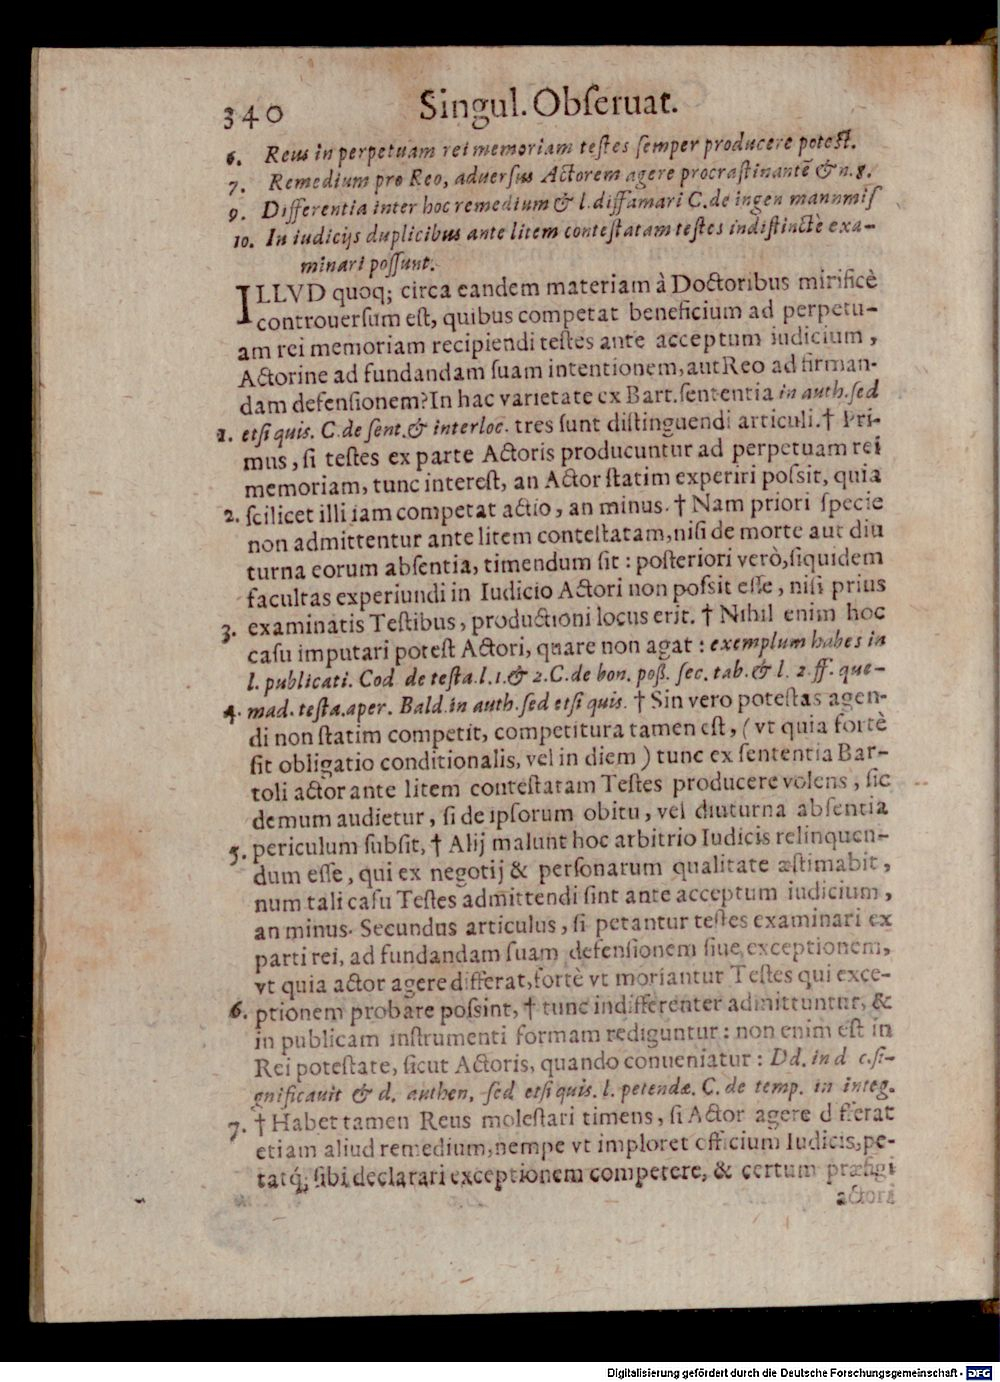 340 Singul. Obſeruat.
6. Reus in perpetuam rei memoriam teſtes ſemper producere poteſt.
7. Remedium pro Reo, aduerſus Actorem agere procraſtinantē & n. 8.
9. Differentia inter hoc remedium & l. diffamari C. de ingen mannmiſ
10. In iudicijs duplicibus ante litem conteſtatam teſtes indiſtinctè exa-
minari poſſunt.
ILLVD quoq; circa eandem materiam à Doctoribus mirificè
controuerſum eſt, quibus competat beneficium ad perpetu-
am rei memoriam recipiendi teſtes ante acceptum iudicium,
Actorine ad fundandam ſuam intentionem, aut Reo ad firman-
dam defenſionem? In hac varietate ex Bart. ſententia in auth. ſed
1. etſi quis. C. de ſent. & interloc. tres ſunt diſtinguendi articuli. † Pri-
mus, ſi teſtes ex parte Actoris producuntur ad perpetuam rei
memoriam, tunc intereſt, an Actor ſtatim experiri poſsit, quia
2. ſcilicet illi iam competat actio, an minus. † Nam priori ſpecie
non admittentur ante litem conteſtatam, niſi de morte aut diu
turna eorum abſentia, timendum ſit: poſteriori verò, ſiquidem
facultas experiundi in Iudicio Actori non poſsit eſſe, niſi prius
3. examinatis Teſtibus, productioni locus erit. † Nihil enim hoc
caſu imputari poteſt Actori, quare non agat: exemplum habes in
l. publicati. Cod de teſta. l. 1. & 2. C. de bon. poß. ſec. tab. & l. 2. ff. que-
4. mad. teſta. aper. Bald. in auth. ſed etſi quis. † Sin vero poteſtas agen-
di non ſtatim competit, competitura tamen eſt, (vt quia fortè
ſit obligatio conditionalis, vel in diem) tunc ex ſententia Bar-
toli actor ante litem conteſtatam Teſtes producere volens, ſic
demum audietur, ſi de ipſorum obitu, vel diuturna abſentia
5. periculum ſubſit, † Alij malunt hoc arbitrio Iudicis relinquen-
dum eſſe, qui ex negotij & perſonarum qualitate æſtimabit,
num tali caſu Teſtes admittendi ſint ante acceptum iudicium,
an minus. Secundus articulus, ſi petantur teſtes examinari ex
parti rei, ad fundandam ſuam defenſionem ſiue exceptionem,
vt quia actor agere differat, fortè vt moriantur Teſtes qui exce-
6. ptionem probare poſsint, † tunc indifferenter admittuntur, &
in publicam inſtrumenti formam rediguntur: non enim eſt in
Rei poteſtate, ſicut Actoris, quando conueniatur: Dd. in d c. ſi-
gnificauit & d. authen, ſed etſi quis. l. petendæ. C. de temp. in integ.
7. † Habet tamen Reus moleſtari timens, ſi Actor agere d fferat
etiam aliud remedium, nempe vt imploret officium Iudicis, pe-
tatq́; ſibi declarari exceptionem competere, & certum præfigi
actori
Digitalisierung gefördert durch die Deutsche Forschungsgemeinschaft - DFG